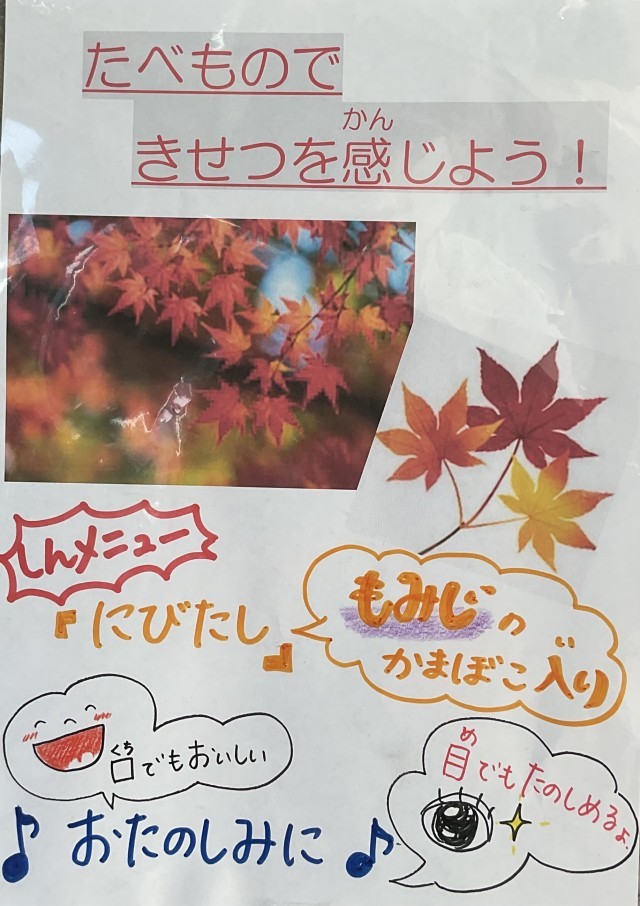 たべもので
かん
きせつを感じよう！
しんメニュー
『にびたし』
もみじの
かまぼこ入り
くち
口でもおいしい
め
目でもたのしめるよ
♪おたのしみに♪